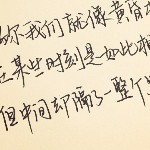 你我们就像黄昏
在某些时刻是如此相
但中间却隔了一整个